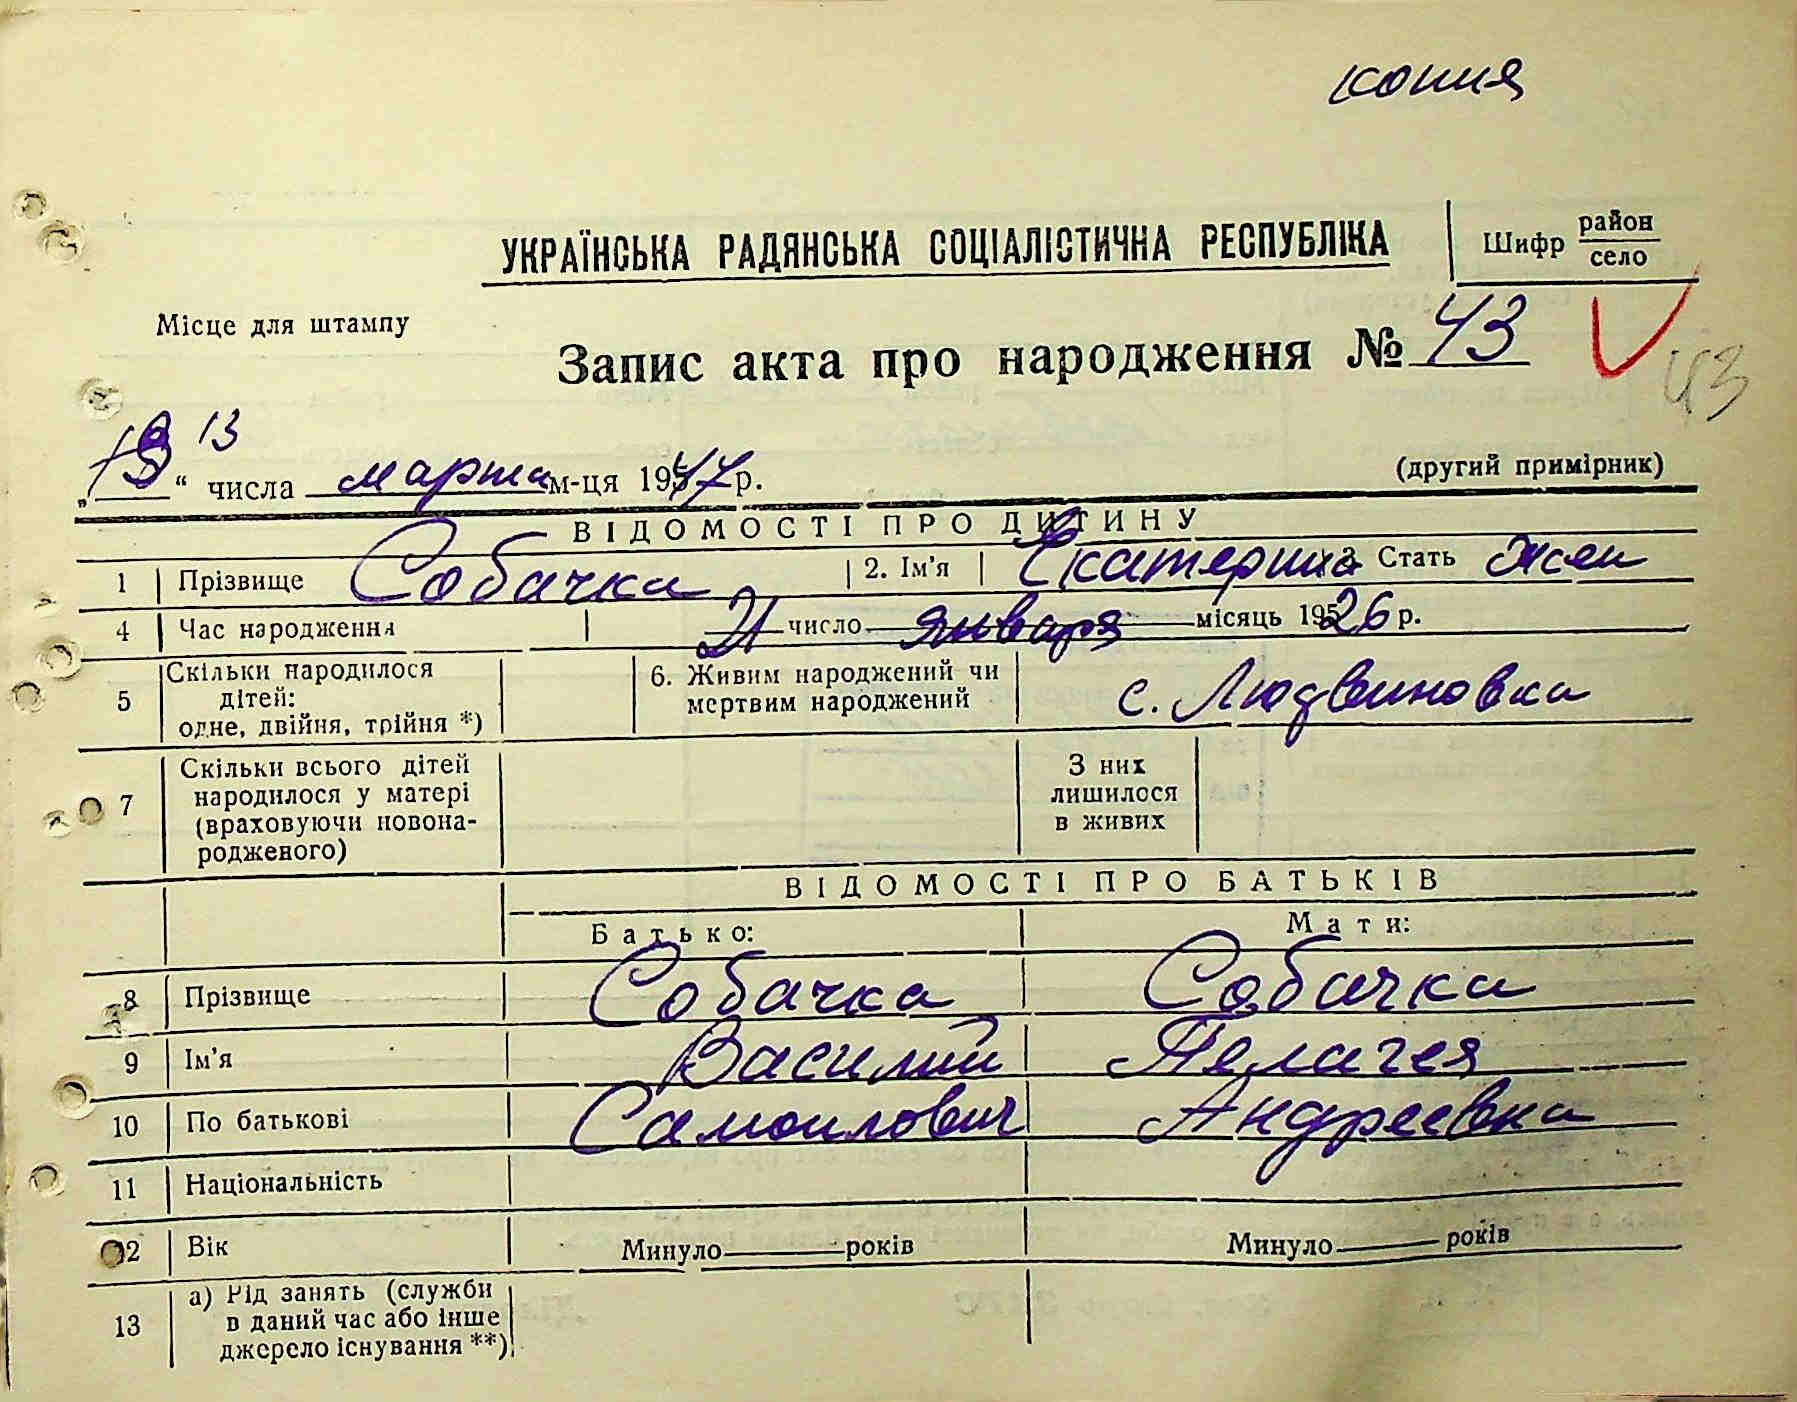 копия
УКРАЇНСЬКА РАДЯНСЬКА СОЦІАЛІСТИЧНА РЕСПУБЛІКА
Шифр район
село
Місце для штампу
Запис акта про народження № 43
43
13
„ “ числа марта м-ця 1947 р.
(другий примірник)
ВІДОМОСТІ ПРО ДИТИНУ
1 Прізвище Собачка 2. Ім'я Екатерина 3 Стать жен
4 Час народження 21 число января місяць 1926 р.
5 Скільки народилося дітей: одне, двійня, трійня *) 6. Живим народжений чи мертвим народжений с. Людвиновка
7 Скільки всього дітей народилося у матері (враховуючи новонародженого) З них лишилося в живих
ВІДОМОСТІ ПРО БАТЬКІВ
Батько: Мати:
8 Прізвище Собачка Собачка
9 Ім'я Василий Пелагея
10 По батькові Самоилович Андреевна
11 Національність
12 Вік Минуло років Минуло років
13 а) Рід занять (служби в даний час або інше джерело існування **)